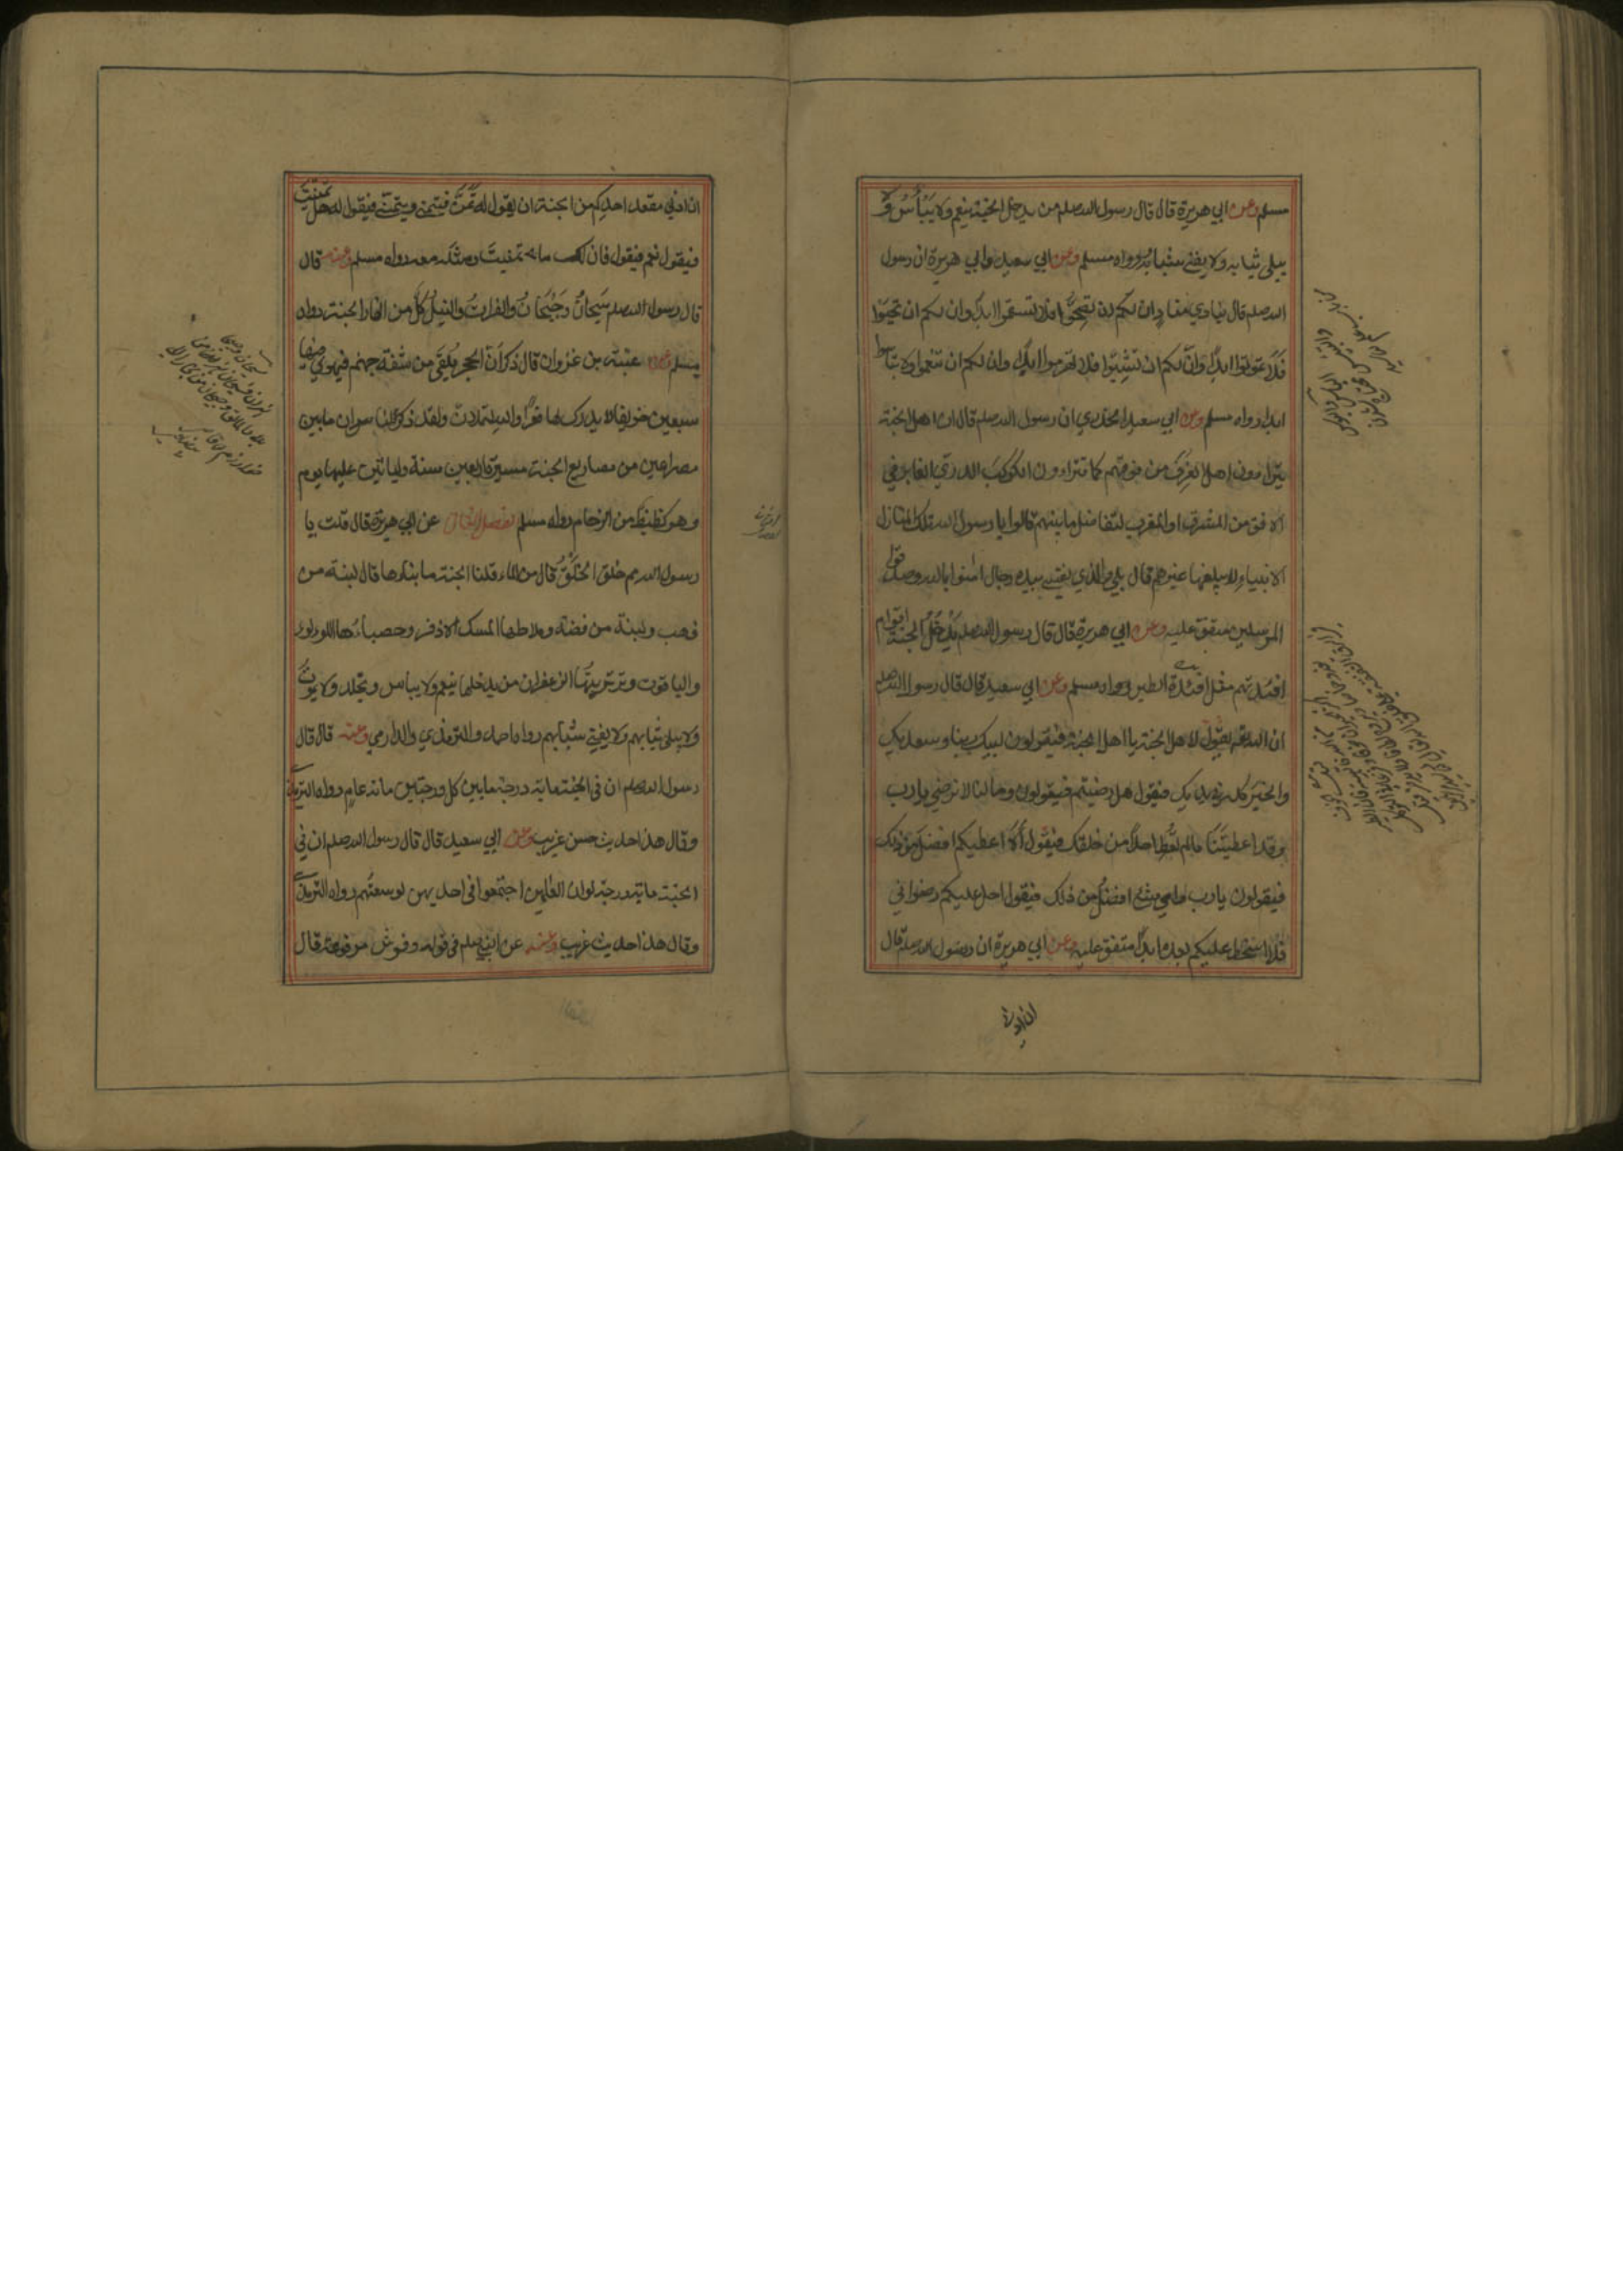 مسلم وعن ابي هريرة قال قال رسول الله صلعم من يدخل الجنة ينعم ولا يَبْأسُ ولا
يبلى ثيابه ولا يفنى شبابه رواه مسلم وعن ابي سعيد وابي هريرة ان رسول
الله صلعم قال ينادي مناد ان لكم ان تصِحُّوا فلا تسقموا ابدا وان لكم ان تحيَوْا
فلا تموتوا ابدا وانّ لكم ان تَشِبّوا فلا تهرموا ابدا وان لكم ان تنعموا ولا تباسوا
ابدا رواه مسلم وعن ابي سعيد الخدري ان رسول الله صلعم قال ان اهل الجنة
يتراءون اهل الغرف من فوقهم كما تتراءون الكوكب الدري الغابر في
الافق من المشرق او المغرب لتفاضل ما بينهم قالوا يا رسول الله تلك منازل
الانبياء لا يبلغها غيرهم قال بلى والذي نفسي بيده رجال امنوا بالله وصدقوا
المرسلين متفق عليه وعن ابي هريرة قال قال رسول الله صلعم يَدْخُلُ الجنة اقوام
افئدتهم مثل افئدة الطير رواه مسلم وعن ابي سعيد قال قال رسول الله صلعم
ان الله تعه يقول لاهل الجنة يا اهل الجنة فيقولون لبيك ربنا وسعديك
والخير كله في يديك فيقول هل رضيتم فيقولون وما لنا لا نرضى يا رب
وقد اعطيتَنا ما لم تُعْطِ احدًا من خلقك فيقول ألا اعطيكم افضل من ذلك
فيقولون يا رب واي شيء افضل من ذلك فيقول احل عليكم رضواني
فلا اسخط عليكم بعده ابدًا متفق عليه وعن ابي هريرة ان رسول الله صلعم قال
ان ادنى
ان ادنى مقعد احدكم من الجنة ان يقول له تمنَّ فيتمنى ويتمنى فيقول له هل تمنيت
فيقول نعم فيقول فان لك ما تمنيتَ ومثله معه رواه مسلم وعنه قال
قال رسول الله صلعم سَيحانُ وجَيْحَانُ والفراتُ والنيلُ كلٌّ من انهار الجنة رواه
مسلم وعن عتبة بن غزوان قال ذكر لنا ان الحجر يُلقى من شفة جهنم فيهوي فيها
سبعين خريفا لا يدرك لها قعرًا والله لتملان ولقد ذكر لنا ان ما بين
مصراعين من مصاريع الجنة مسيرة اربعين سنة ولياتين عليها يوم
وهو كظيظ من الزحام رواه مسلم الفصل الثاني عن ابي هريرة قال قلت يا
رسول الله مم خلق الخَلْقُ قال من الماء قلنا الجنة ما بناؤها قال لبنة من
ذهب ولبنة من فضة وملاطها المسك الاذفر وحصباءُها اللؤلؤ
والياقوت وتربتها الزعفران من يدخلها ينعم ولا يباس ويخلد ولا يموت
ولا يبلى ثيابهم ولا يفنى شبابهم رواه احمد والترمذي والدارمي وعنه قال قال
رسول الله صلعم ان في الجنة ماية درجة ما بين كل درجتين مائة عام رواه الترمذي
وقال هذا حديث حسن غريب وعن ابي سعيد قال قال رسول الله صلعم ان في
الجنة ماية درجة لو ان العٰلمين اجتمعوا في احديهن لوسعتهم رواه الترمذي
وقال هذا حديث غريب وعنه عن النبي صلعم في قوله وفرش مرفوعة قال